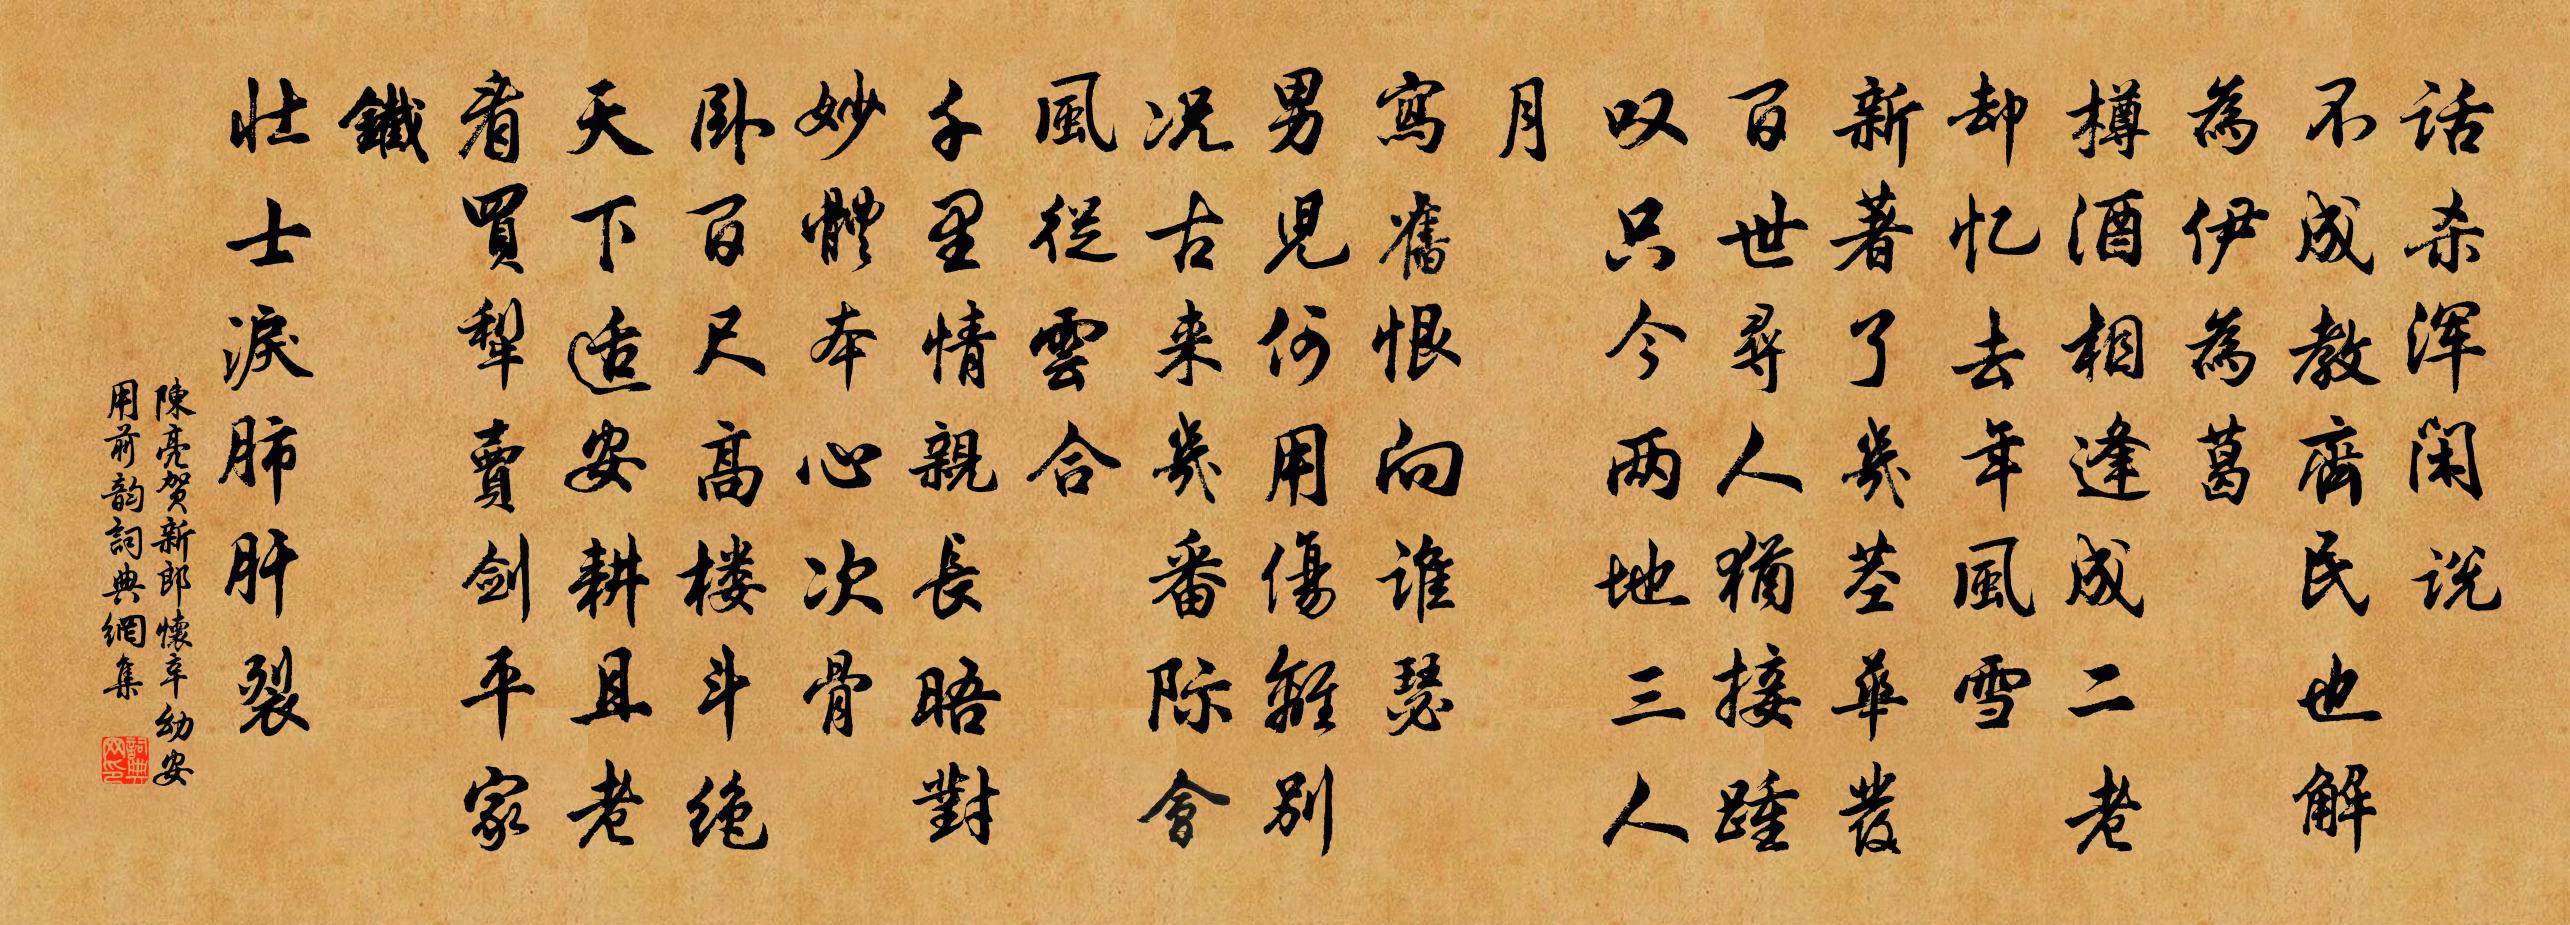 话杀浑闲说
不成教齊民也解
為伊為葛
樽酒相逢成二老
却忆去年風雪
新著了幾茎華发
百世尋人猶接踵
叹只今两地三人
月
寫舊恨向谁瑟
男児何用傷離别
况古来幾番际會
風従雲合
千里情親長晤對
妙體本心次骨
卧百尺高楼斗绝
天下适安耕且老
看買犁賣剑平家
鐵
壮士淚肺肝裂
陳亮贺新郎懷辛幼安
用前韵詞典網集
詞典网印